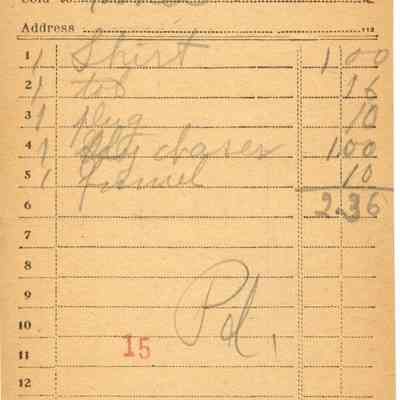 Sold to
Address
1 1 Shirt 1 00
2 1 tob 16
3 1 plug 10
4 1 chaser 1.00
5 1 funnel 10
6 2.36
7
8
9 Pd.
10
11 15
12